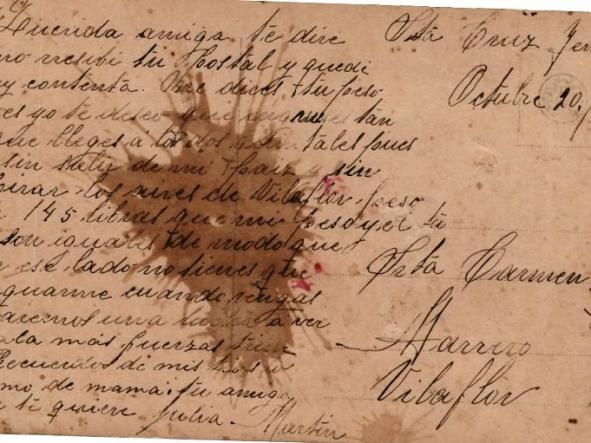 Querida amiga te dire
mo recibi tu Postal y quedi
y contenta. Me dices tu peso
es yo te deseo que engrues tan
que lleges a los dos quintales pues
sin salir de mi Paiz y sin
pirar los aires de Vilaflor peso
145 libras que mi peso y el tu
son iguales de modo que
ese lado no tienes que
guanme cuando vengas
aremos una a ver
más fuerzas
Recuerdos de mis tios y
mo de mama. tu amiga
e te quiere Julia. Martin
Sta Cruz Ten
Octubre 20.
Srta Carmen
Marrero
Vilaflor